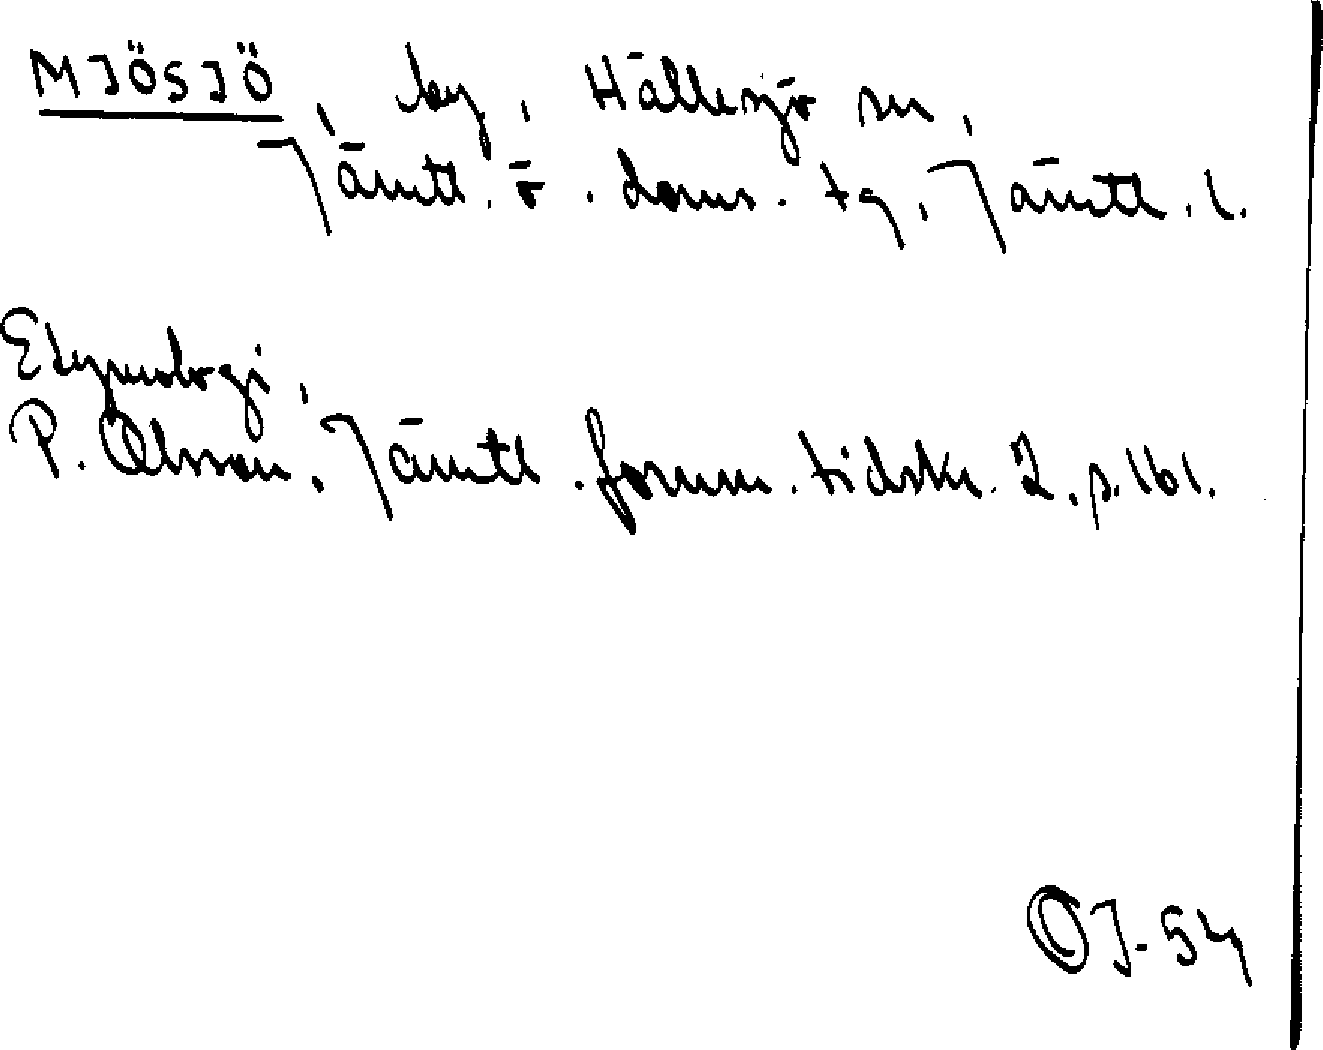 MJÖSJÖ, by, Hällesjö sn,
Jämtl. ö. doms. tg, Jämtl. l.
Etymologi,
P. Olsson, Jämtl. fornm. tidskr. 2, s. 161.
OJ-54